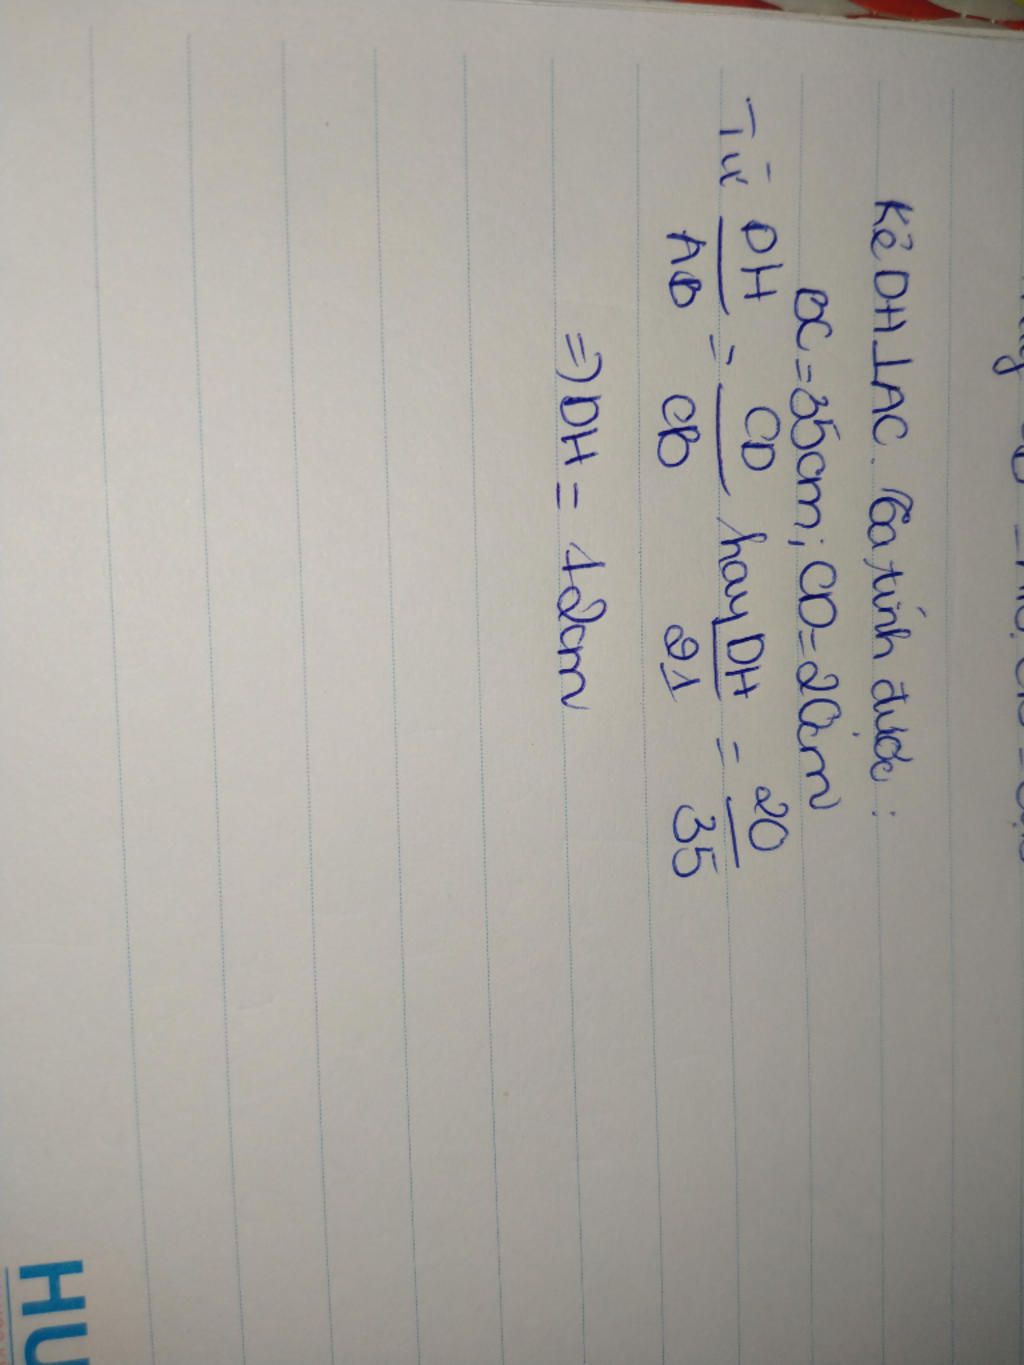 Kẻ DH⊥AC. Ta tính được:
BC = 35cm; CD = 20cm
Từ DH/AB = CD/CB hay DH/21 = 20/35
=> DH = 12cm
HU